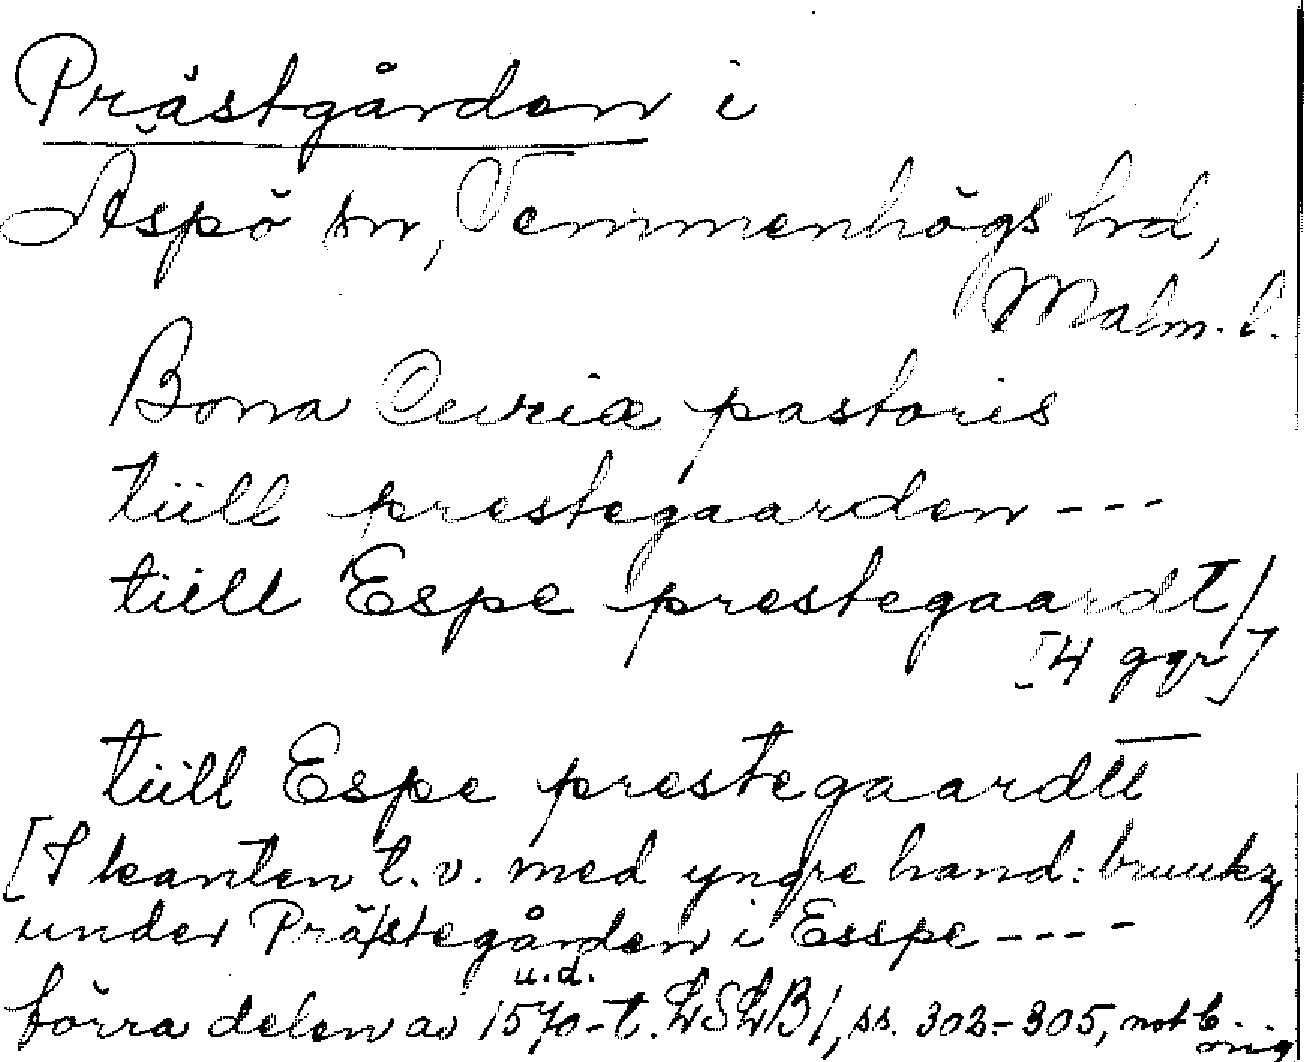 Prästgården i
Äspö sn, Vemmenhögs hd,
Malm. l.
Bona Curiæ pastoris
tiill prestegaarden ---
tiill Espe prestegaardt/
[4 ggr]
tiill Espe prestegaardtt
[I kanten t.v. med yngre hand: bruukz
under Prästegården i Esspe ----
u.d.
förra delen av 1570-t. LSLB1, ss. 302-305, not 6
orig